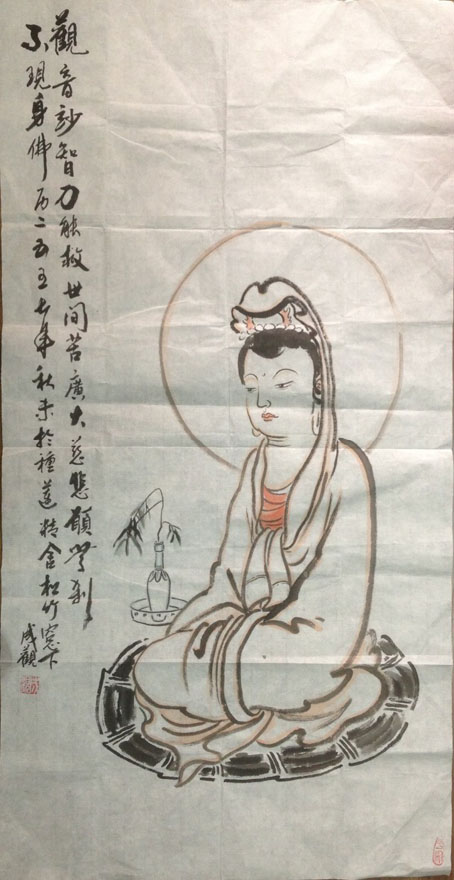 觀音妙智力能救世间苦廣大慈悲願無刹
不現身佛历二五五七年秋末於種蓮精舍松竹窓下
成觀